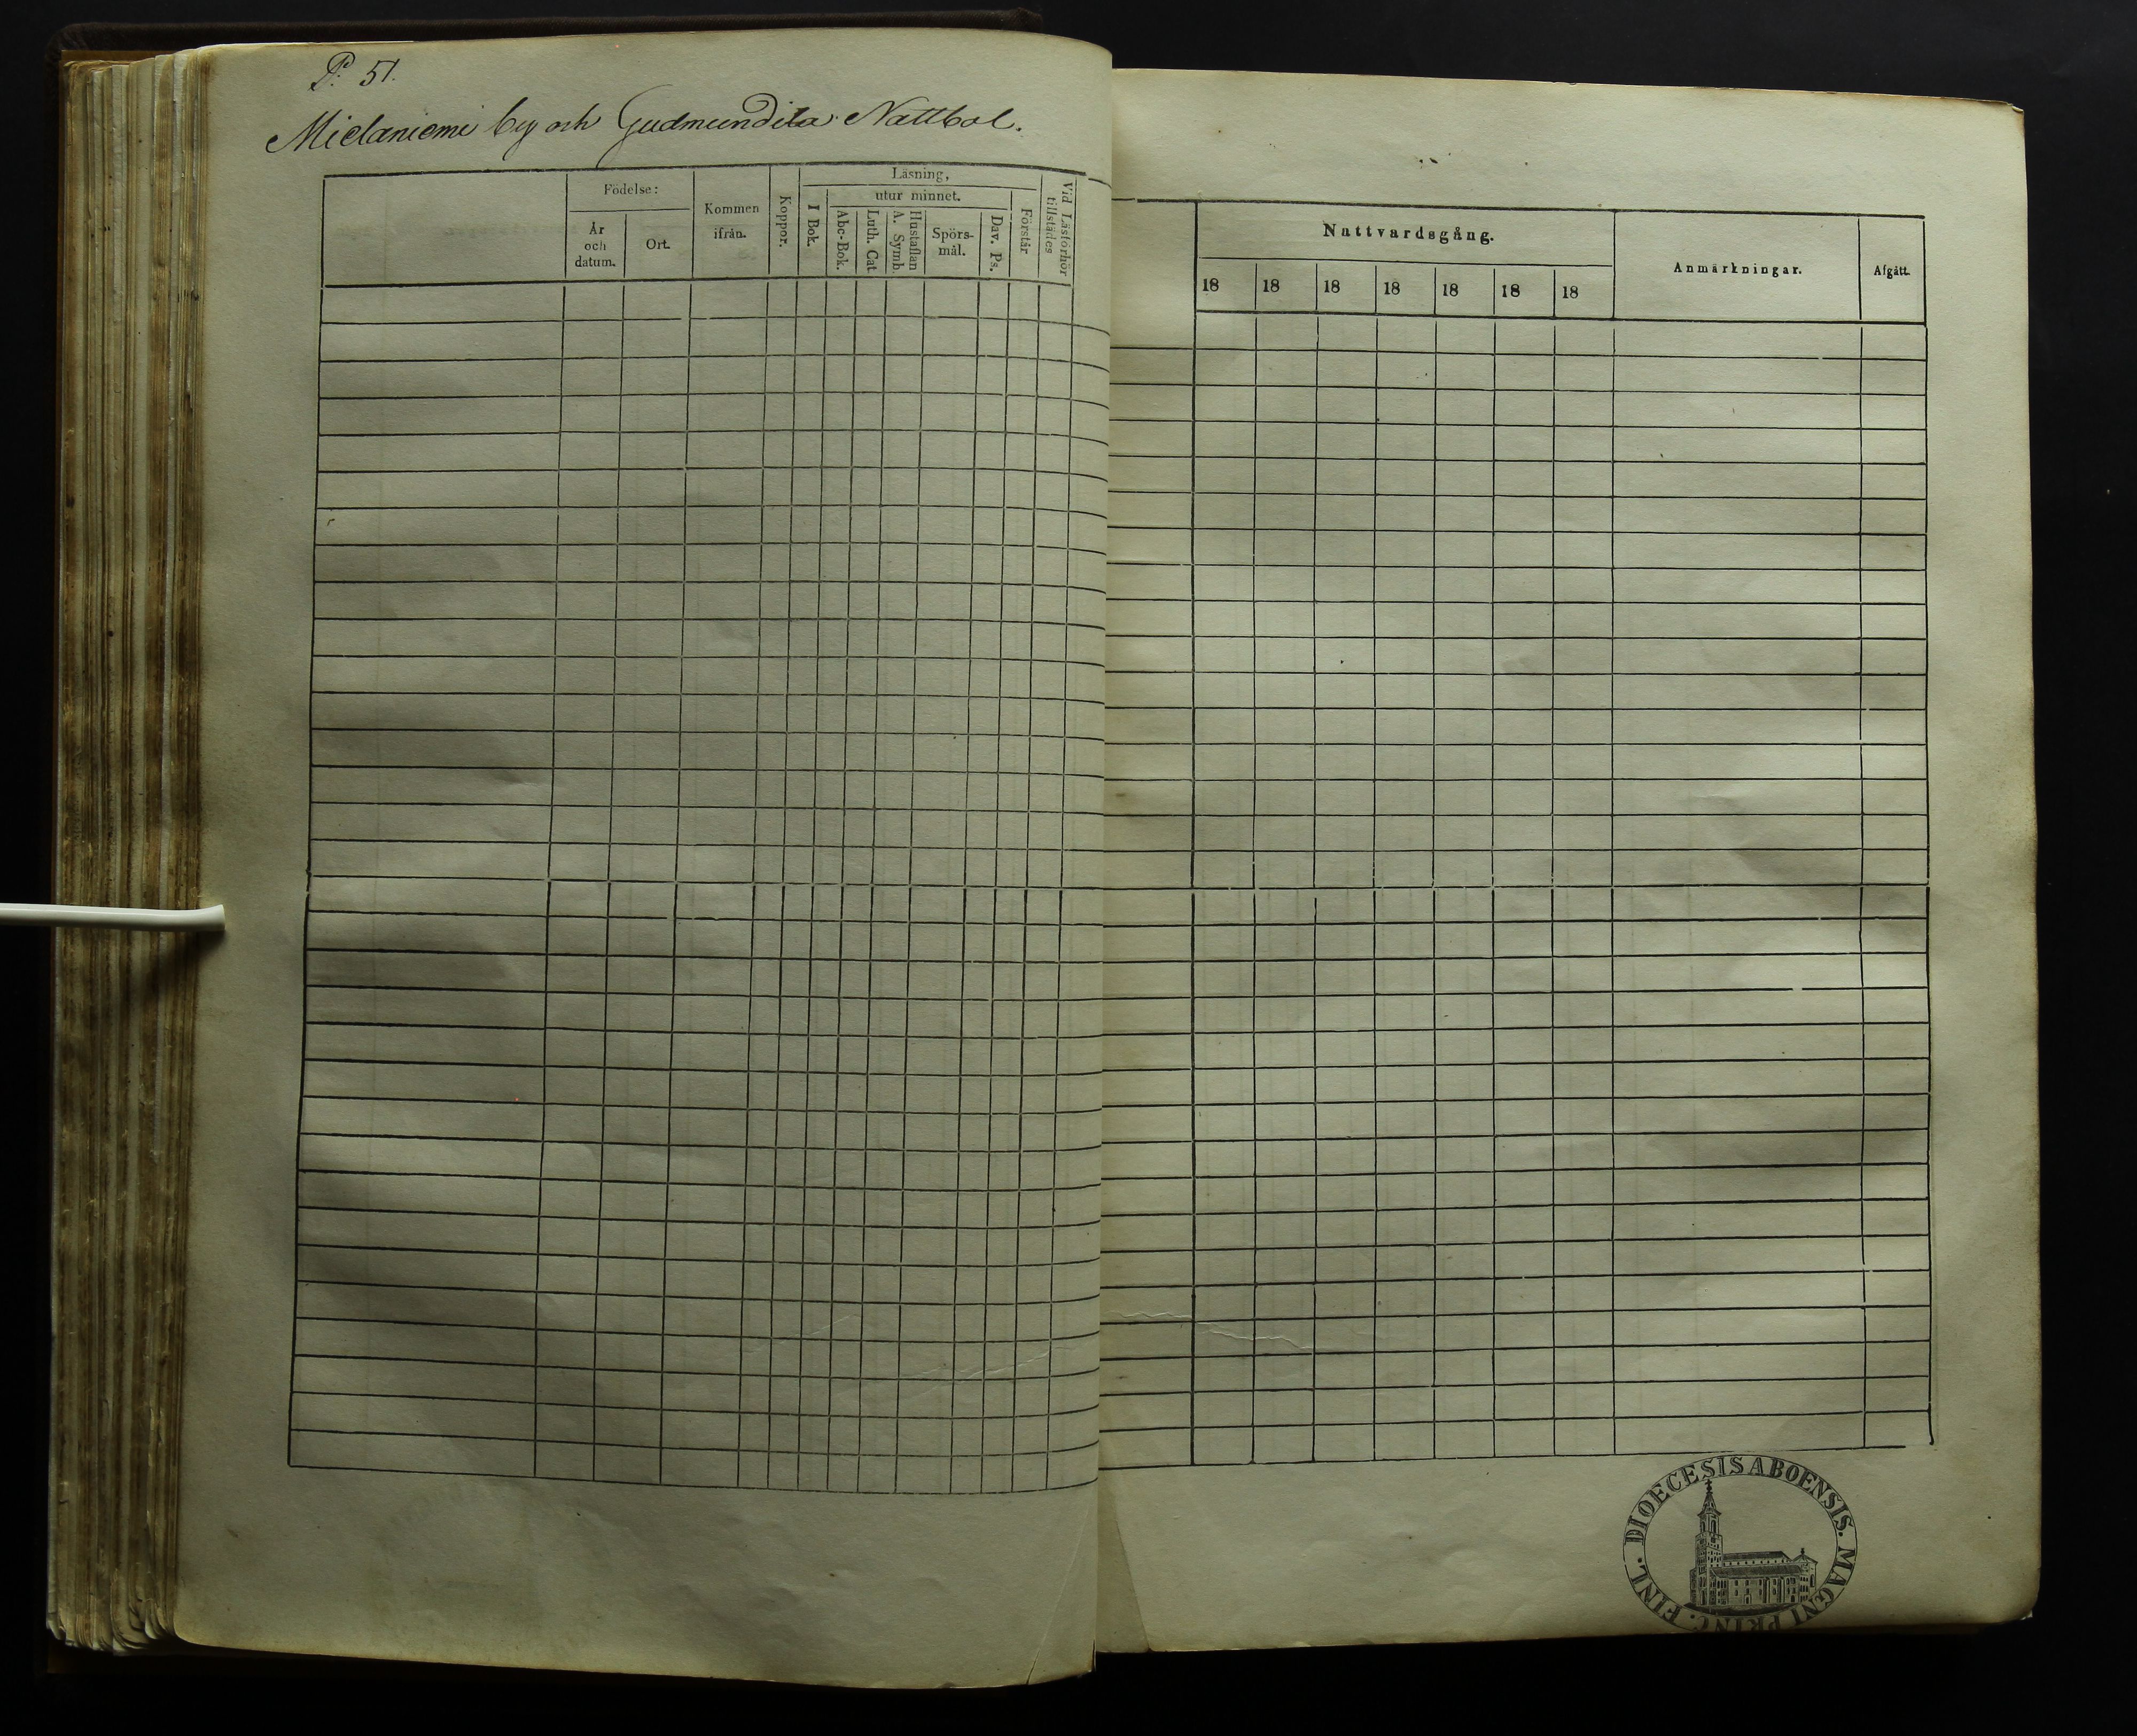 P. 51.
Mielaniemi by och Gudmundila Nattbol.
Födelse:
År och datum.
Ort.
Kommen ifrån.
Koppor.
Läsning,
utur minnet.
I Bok.
Abc-Bok.
Luth. Cat
Hustaflan A. Symb.
Spörs-mål.
Dav. Ps.
Förstår
Vid Läsförhör tillstädes
Nattvardsgång.
18 18 18 18 18 18 18
Anmärkningar.
Afgått.
DIOECESIS ABOENSIS. MAGNI PRINC. FINL.